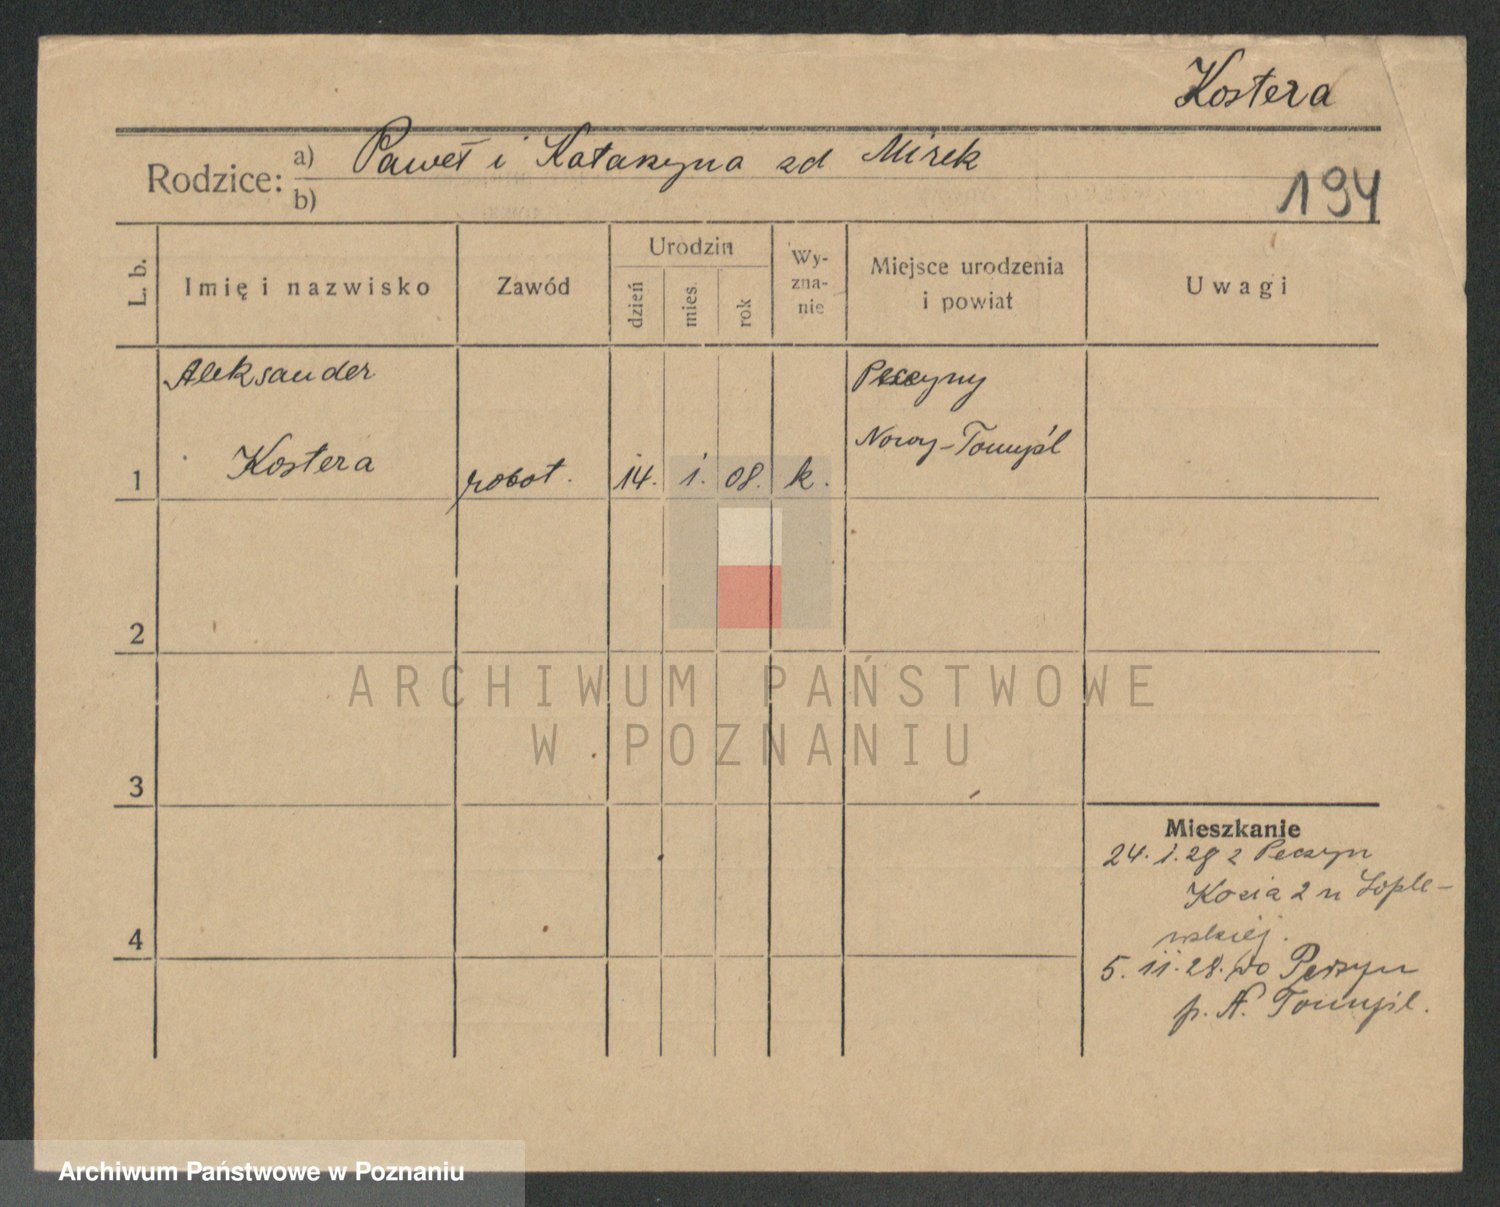 Kostera
Rodzice: a) Paweł i Katarzyna zd Mirek
b)
194
L. b. Imię i nazwisko Zawód Urodzin dzień mies. rok Wyznanie Miejsce urodzenia i powiat Uwagi
Aleksander
Nowy-Tomyśl
1 Kostera robot. 14. 1. 08. k.
2
ARCHIWUM PAŃSTWOWE
W POZNANIU
3
Mieszkanie
24. 1. 28 z
Kozia 2
4
5. 11. 28. do
p. N. Tomyśl.
Archiwum Państwowe w Poznaniu